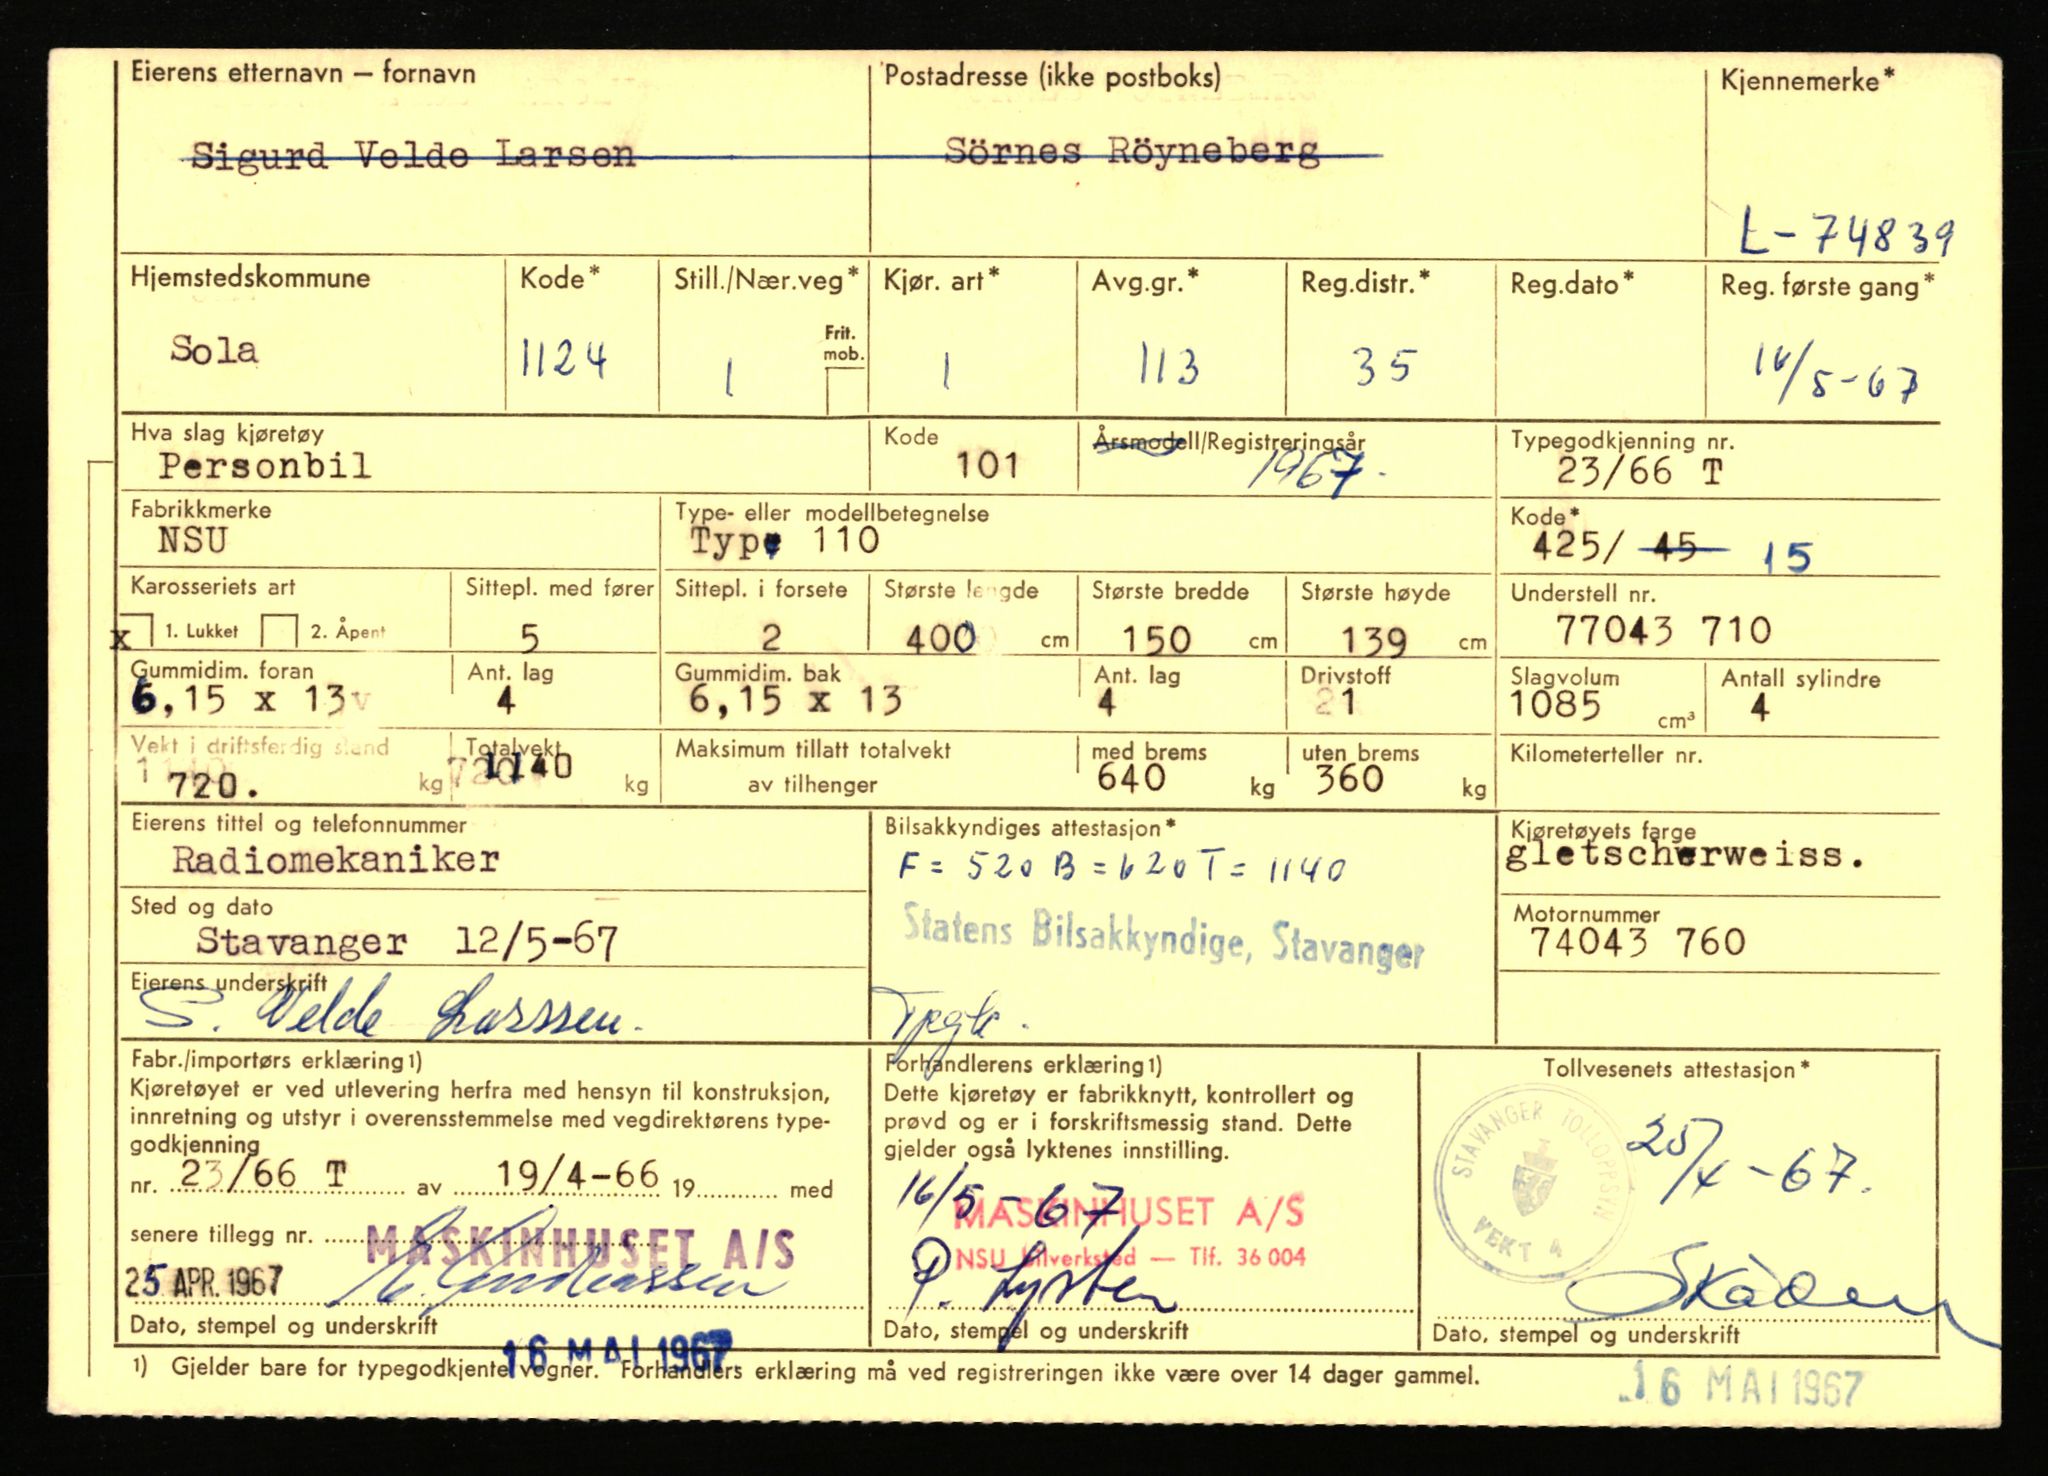 Eierens etternavn — fornavn
Sigurd Velde Larsen
Postadresse (ikke postboks)
Sörnes Röyneberg
Kjennemerke*
L-74839
Hjemstedskommune
Sola
Kode*
1124
Still./Nær.veg*
1
Frit.
mob.
Kjør. art*
1
Avg.gr.*
113
Reg.distr.*
35
Reg.dato*
Reg. første gang*
16/5-67
Hva slag kjøretøy
Personbil
Kode
101
Årsmodell/Registreringsår
1967.
Typegodkjenning nr.
23/66 T
Fabrikkmerke
NSU
Type- eller modellbetegnelse
Type 110
Kode*
425/ 45 15
Karosseriets art
x 1. Lukket 2. Åpent
Sittepl. med fører
5
Sittepl. i forsete
2
Største lengde
400 cm
Største bredde
150 cm
Største høyde
139 cm
Understell nr.
77043 710
Gummidim. foran
6,15 x 13
Ant. lag
4
Gummidim. bak
6,15 x 13
Ant. lag
4
Drivstoff
1
Slagvolum
1085 cm³
Antall sylindre
4
Vekt i driftsferdig stand
720. kg
Totalvekt
1140 kg
Maksimum tillatt totalvekt
av tilhenger
med brems
640 kg
uten brems
360 kg
Kilometerteller nr.
Eierens tittel og telefonnummer
Radiomekaniker
Bilsakkyndiges attestasjon*
F = 520 B = 620 T = 1140
Statens Bilsakkyndige, Stavanger
Kjøretøyets farge
gletscherweiss.
Sted og dato
Stavanger 12/5-67
Motornummer
74043 760
Eierens underskrift
S. Velde Larssen.
Fabr./importørs erklæring1)
Kjøretøyet er ved utlevering herfra med hensyn til konstruksjon,
innretning og utstyr i overensstemmelse med vegdirektørens type-
godkjenning
nr. 23/66 T av 19/4-66 19 med
senere tillegg nr.
MASKINHUSET A/S
25 APR. 1967
Dato, stempel og underskrift
Forhandlerens erklæring1)
Dette kjøretøy er fabrikknytt, kontrollert og
prøvd og er i forskriftsmessig stand. Dette
gjelder også lyktenes innstilling.
16/5-67
MASKINHUSET A/S
NSU bilverksted — Tlf. 36 004
Dato, stempel og underskrift
Tollvesenets attestasjon*
STAVANGER TOLLOPPSYN
VEKT 4
25/4-67.
Dato, stempel og underskrift
16 MAI 1967
1) Gjelder bare for typegodkjente vogner. Forhandlers erklæring må ved registreringen ikke være over 14 dager gammel.
16 MAI 1967